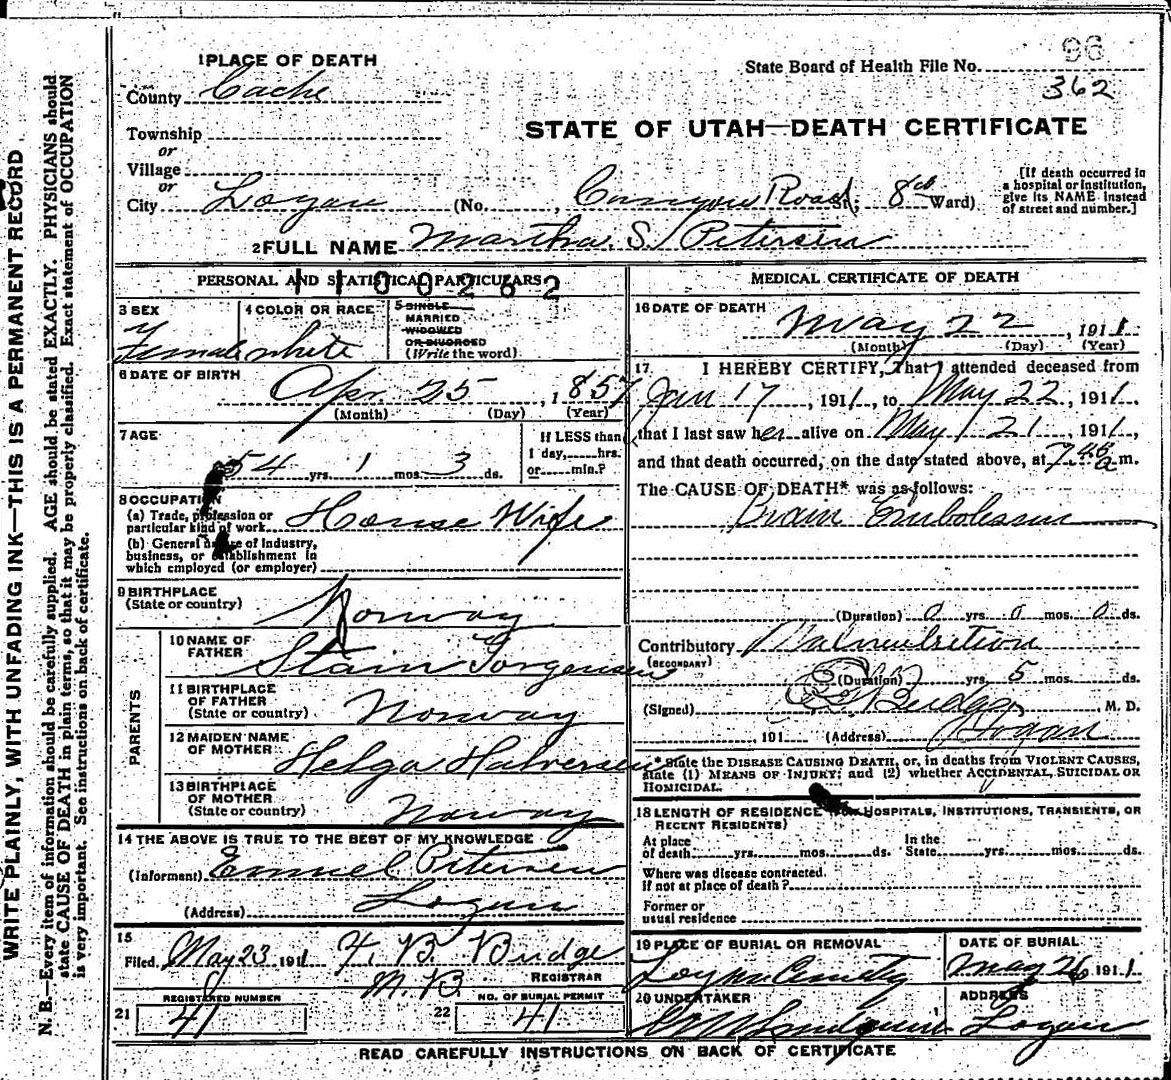 96
1 PLACE OF DEATH
State Board of Health File No.
362
County Cache
STATE OF UTAH—DEATH CERTIFICATE
Township
or
Village
or
City Logan (No. , Canyon Road; 8th Ward)
[If death occurred in a hospital or institution, give its NAME instead of street and number.]
2 FULL NAME Martha S. Petersen
PERSONAL AND STATISTICAL PARTICULARS
1100262
3 SEX
Female
4 COLOR OR RACE
white
5 SINGLE
MARRIED
WIDOWED
OR DIVORCED
(Write the word)
6 DATE OF BIRTH
Apr. 25, 1857
(Month) (Day) (Year)
7 AGE
54 yrs. 1 mos. 3 ds.
If LESS than
1 day, hrs.
or min.?
8 OCCUPATION
(a) Trade, profession or
particular kind of work House Wife
(b) General nature of industry,
business, or establishment in
which employed (or employer)
9 BIRTHPLACE
(State or country) Norway
PARENTS
10 NAME OF
FATHER Stain Jorgensen
11 BIRTHPLACE
OF FATHER
(State or country) Norway
12 MAIDEN NAME
OF MOTHER Helga Halversen
13 BIRTHPLACE
OF MOTHER
(State or country) Norway
14 THE ABOVE IS TRUE TO THE BEST OF MY KNOWLEDGE
(Informant) Emmel Petersen
(Address) Logan
15
Filed May 23 1911 F. B. Budge
M. D. REGISTRAR
REGISTERED NUMBER
21 41
NO. OF BURIAL PERMIT
22 41
MEDICAL CERTIFICATE OF DEATH
16 DATE OF DEATH
May 22, 1911
(Month) (Day) (Year)
17 I HEREBY CERTIFY, That I attended deceased from
Jan 17, 1911, to May 22, 1911,
that I last saw her alive on May 21, 1911,
and that death occurred, on the date stated above, at 7.45 a m.
The CAUSE OF DEATH* was as follows:
Brain Embolism
(Duration) 0 yrs. 0 mos. 0 ds.
Contributory Malnutrition
(SECONDARY)
(Duration) yrs. 5 mos. ds.
(Signed) Budge, M. D.
, 191 (Address) Logan
*State the DISEASE CAUSING DEATH, or, in deaths from VIOLENT CAUSES,
state (1) MEANS OF INJURY; and (2) whether ACCIDENTAL, SUICIDAL OR
HOMICIDAL.
18 LENGTH OF RESIDENCE (FOR HOSPITALS, INSTITUTIONS, TRANSIENTS, OR
RECENT RESIDENTS)
At place of death yrs. mos. ds. In the State yrs. mos. ds.
Where was disease contracted.
If not at place of death?
Former or
usual residence
19 PLACE OF BURIAL OR REMOVAL
Logan Cemetery
DATE OF BURIAL
May 26 1911
20 UNDERTAKER
ADDRESS
Logan
READ CAREFULLY INSTRUCTIONS ON BACK OF CERTIFICATE
WRITE PLAINLY, WITH UNFADING INK—THIS IS A PERMANENT RECORD
N. B.—Every item of information should be carefully supplied. AGE should be stated EXACTLY. PHYSICIANS should
state CAUSE OF DEATH in plain terms, so that it may be properly classified. Exact statement of OCCUPATION
is very important. See instructions on back of certificate.